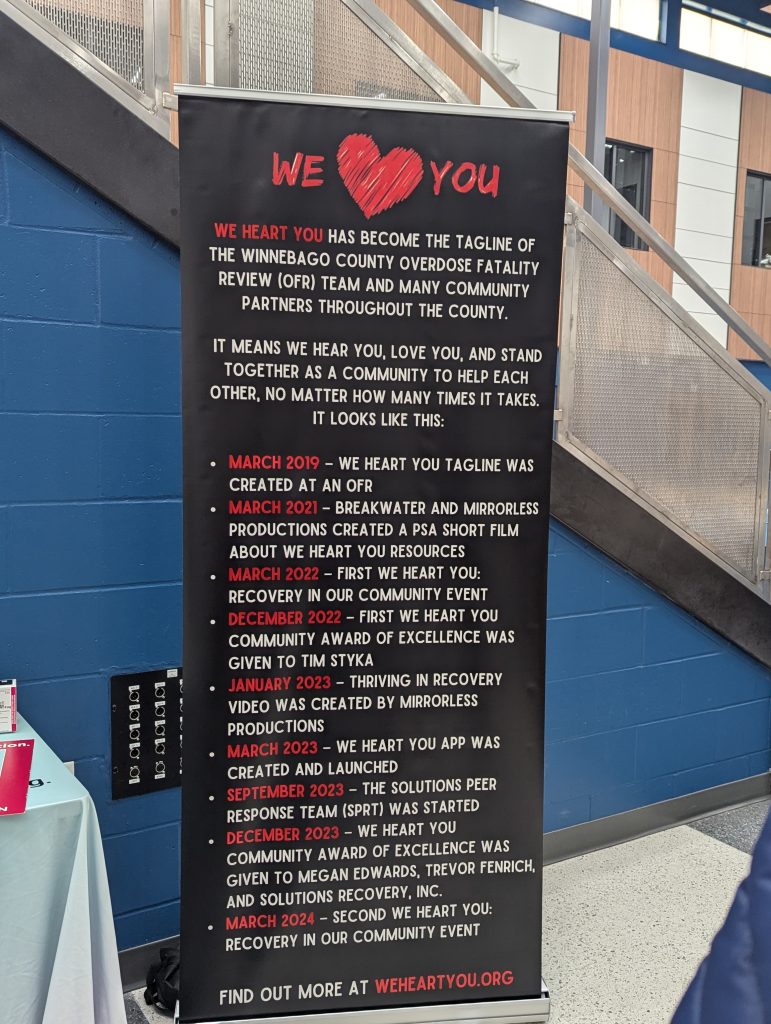 WE YOU
WE HEART YOU HAS BECOME THE TAGLINE OF
THE WINNEBAGO COUNTY OVERDOSE FATALITY
REVIEW (OFR) TEAM AND MANY COMMUNITY
PARTNERS THROUGHOUT THE COUNTY.
IT MEANS WE HEAR YOU, LOVE YOU, AND STAND
TOGETHER AS A COMMUNITY TO HELP EACH
OTHER, NO MATTER HOW MANY TIMES IT TAKES.
IT LOOKS LIKE THIS:
• MARCH 2019 – WE HEART YOU TAGLINE WAS
CREATED AT AN OFR
• MARCH 2021 – BREAKWATER AND MIRRORLESS
PRODUCTIONS CREATED A PSA SHORT FILM
ABOUT WE HEART YOU RESOURCES
• MARCH 2022 – FIRST WE HEART YOU:
RECOVERY IN OUR COMMUNITY EVENT
• DECEMBER 2022 – FIRST WE HEART YOU
COMMUNITY AWARD OF EXCELLENCE WAS
GIVEN TO TIM STYKA
• JANUARY 2023 – THRIVING IN RECOVERY
VIDEO WAS CREATED BY MIRRORLESS
PRODUCTIONS
• MARCH 2023 – WE HEART YOU APP WAS
CREATED AND LAUNCHED
• SEPTEMBER 2023 – THE SOLUTIONS PEER
RESPONSE TEAM (SPRT) WAS STARTED
• DECEMBER 2023 – WE HEART YOU
COMMUNITY AWARD OF EXCELLENCE WAS
GIVEN TO MEGAN EDWARDS, TREVOR FENRICH,
AND SOLUTIONS RECOVERY, INC.
• MARCH 2024 – SECOND WE HEART YOU:
RECOVERY IN OUR COMMUNITY EVENT
FIND OUT MORE AT WEHEARTYOU.ORG